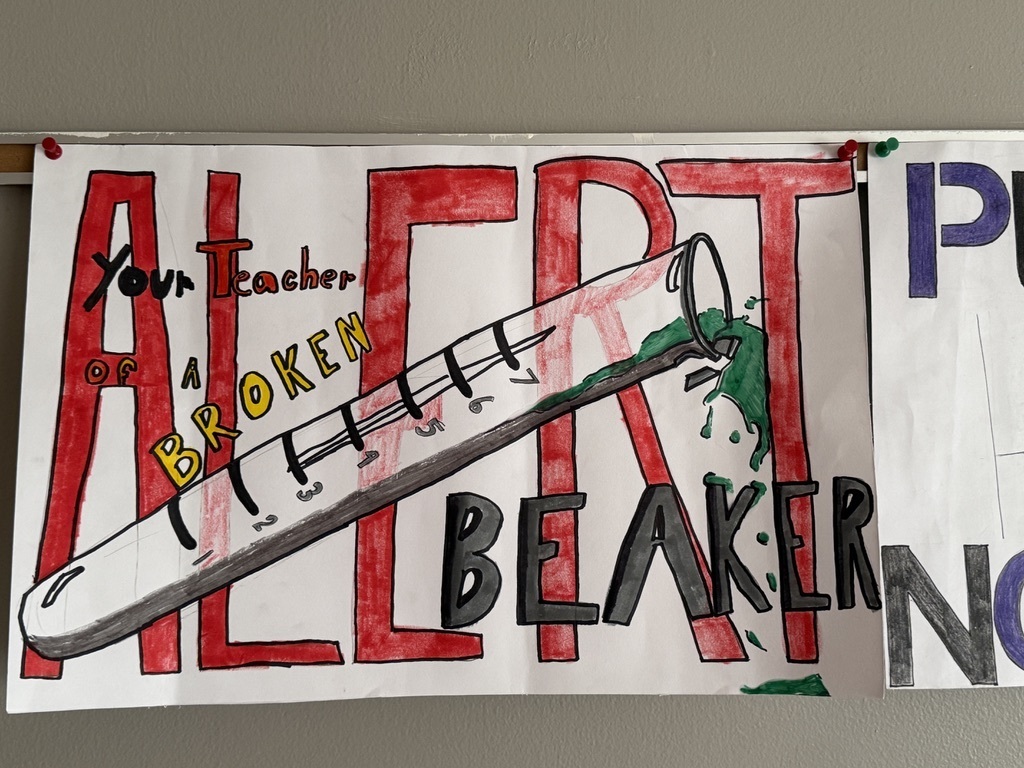 ALERT
Your Teacher
OF A
BROKEN
BEAKER
1
2
3
4
5
6
7
PU
NO